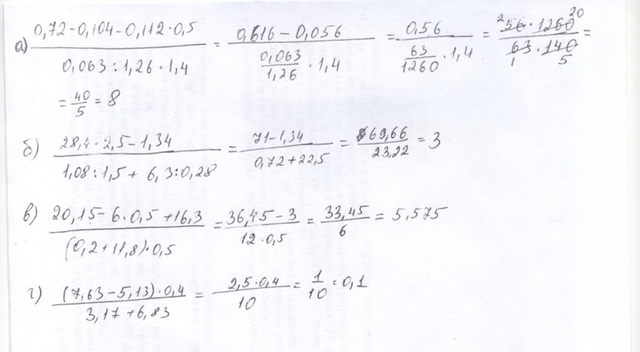 а) (0,72-0,104-0,112·0,5)/(0,063:1,26·1,4) = (0,616-0,056)/((0,063/1,26)·1,4) = 0,56/((63/1260)·1,4) = (2 56·1260 20)/(1 63·140 5) =
= 40/5 = 8
б) (28,4·2,5-1,34)/(1,08:1,5+6,3:0,28) = (71-1,34)/(0,72+22,5) = 69,66/23,22 = 3
в) (20,15-6·0,5+16,3)/((0,2+11,8)·0,5) = (36,45-3)/(12·0,5) = 33,45/6 = 5,575
г) ((7,63-5,13)·0,4)/(3,17+6,83) = (2,5·0,4)/10 = 1/10 = 0,1